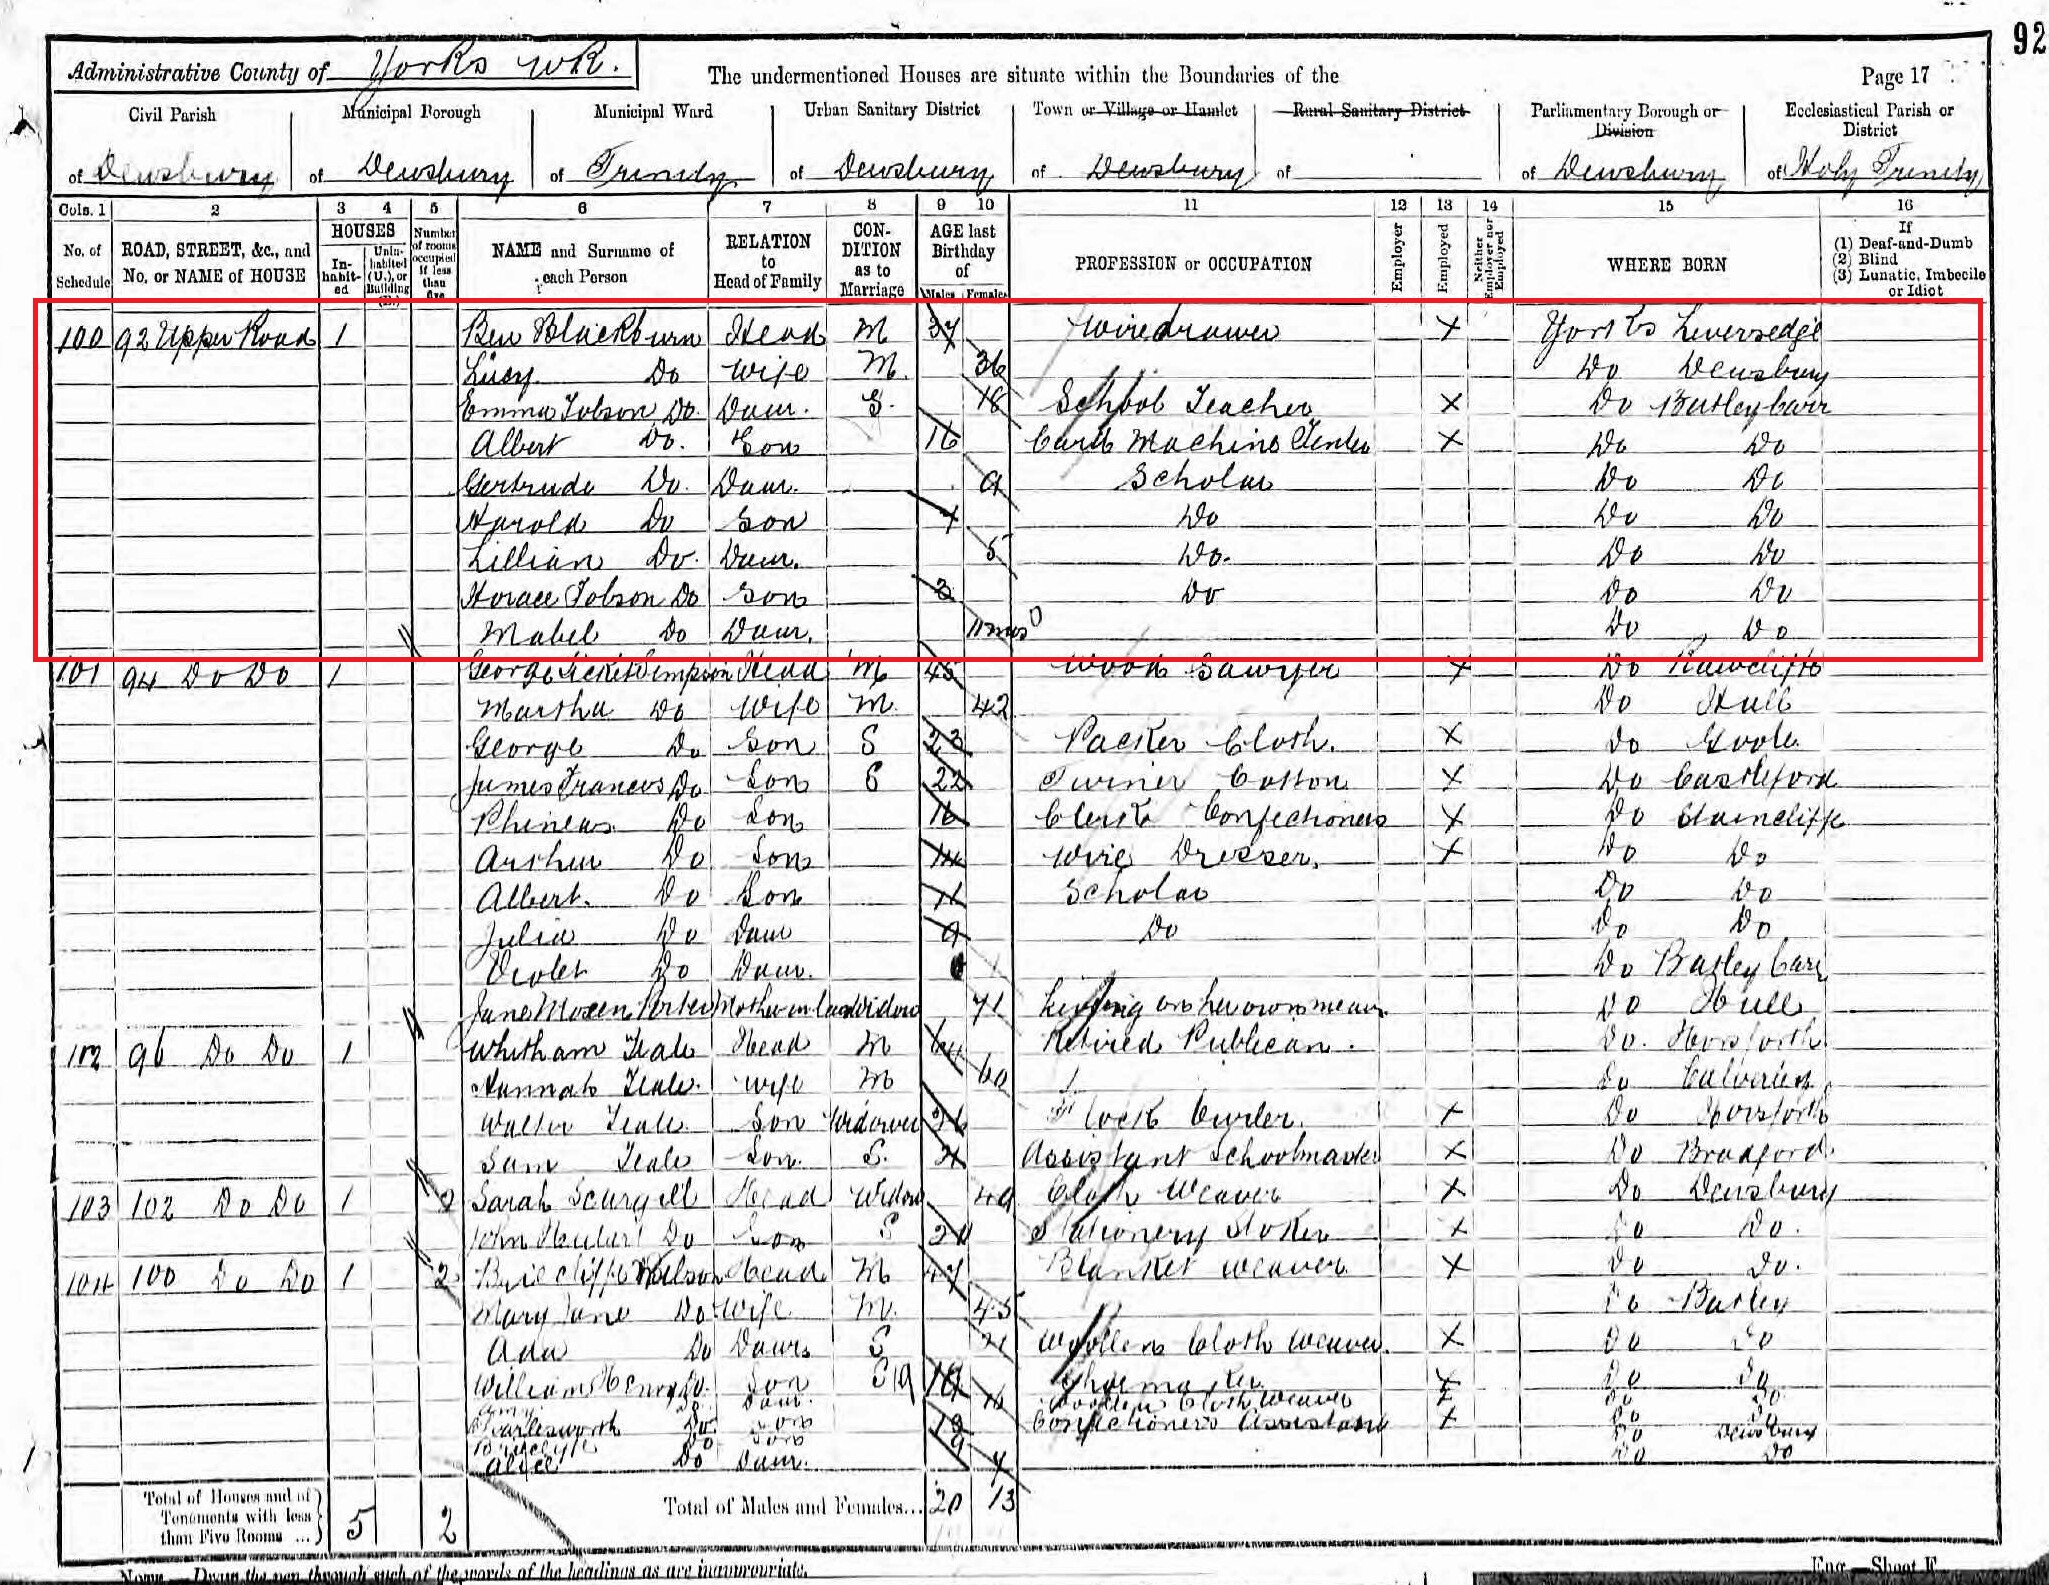 92
Administrative County of Yorks W R. The undermentioned Houses are situate within the Boundaries of the Page 17
Civil Parish Municipal Borough Municipal Ward Urban Sanitary District Town or Village or Hamlet Rural Sanitary District Parliamentary Borough or Division Ecclesiastical Parish or District
of Dewsbury of Dewsbury of Trinity of Dewsbury of Dewsbury of of Dewsbury of Holy Trinity
Cols. 1 2 3 4 5 6 7 8 9 10 11 12 13 14 15 16
No. of Schedule ROAD, STREET, &c., and No. or NAME of HOUSE HOUSES Inhabited Uninhabited (U.), or Building (B.) Number of rooms occupied if less than five NAME and Surname of each Person RELATION to Head of Family CONDITION as to Marriage AGE last Birthday of Males Females PROFESSION or OCCUPATION Employer Employed Neither Employer nor Employed WHERE BORN If (1) Deaf-and-Dumb (2) Blind (3) Lunatic, Imbecile or Idiot
100 92 Upper Road 1 Ben Blackburn Head M 37 Wiredrawer X Yorks Liversedge
Lucy Do Wife M. 36 Do Dewsbury
Emma Jobson Do. Daur. S. 18 School Teacher X Do Batley Carr
Albert Do. Son 16 Card Machine Tenter X Do Do
Gertrude Do. Daur. 9 Scholar Do Do
Harold Do Son 7 Do Do Do
Lillian Do. Daur. 5 Do. Do Do
Horace Jobson Do Son 3 Do Do Do
Mabel Do Daur. 11 mos Do Do
101 94 Do Do 1 George Simpson Head M 45 Wood Sawyer X Do Rawcliffe
Martha Do Wife M. 42 Do Hull
George Do Son S 23 Packer Cloth. X Do Goole.
James Frances Do Son S 22 Turner Cotton X Do Castleford
Phineas Do Son 16 Clerk Confectioners X Do Staincliffe
Arthur Do Son 14 Wire Dresser. X Do Do
Albert. Do Son 11 Scholar Do Do
Julia Do Daur 9 Do Do Do
Violet Do Daur. 1 Do Batley Carr
Jane Porter Mother in law Widow 71 Living on her own means Do Hull
102 96 Do Do 1 Whitham Teale Head M 64 Retired Publican. Do. Horsforth
Hannah Teale. Wife M 60 Do Calverley
Walter Teale Son Widower 36 Flock X Do Horsforth
Sam Teale Son. S. 21 Assistant Schoolmaster X Do Bradford.
103 102 Do Do 1 2 Sarah Scargill Head Widow 49 Cloth Weaver X Do Dewsbury
John Do Son S 20 Stationery Stoker X Do Do.
104 100 Do Do 1 2 Briecliffe Wilson Head M 47 Blanket Weaver X Do Do.
Mary Jane Do Wife M. 45 Do Batley
Ada Do Daur S 21 Woollen Cloth Weaver. X Do Do
William Henry Do. Son S 19 Shoemaker X Do Do
Amy Do Daur. 16 Woollen Cloth Weaver X Do Do
Charlesworth Do Son 13 Confectioners Assistant X Do Do
Briecliffe Do Son 9 Do Dewsbury
Alice Do Daur. 7 Do Do
Total of Houses and of Tenements with less than Five Rooms ... 5 2 Total of Males and Females... 20 13
NOTE.—Draw the pen through such of the words of the headings as are inappropriate. Eng.—Sheet F.